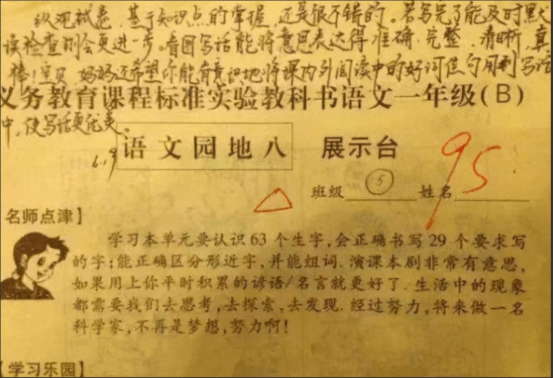 纵观试卷，基于知识点的掌握，还是很不错的。若写完了能及时默
读检查则会更进一步。看图写话能将意思表达得准确、完整、清晰，真
棒！宝贝，妈妈还希望你能有意识地将课内外阅读中的好词佳句用到写话
义务教育课程标准实验教科书语文一年级(B)
中，使写话更优美。
6.19
语文园地八 展示台
95
班级 5 姓名
名师点津】
学习本单元要认识63个生字,会正确书写29个要求写
的字;能正确区分形近字,并能组词.演课本剧非常有意思,
如果用上你平时积累的谚语/名言就更好了.生活中的现象
都需要我们去思考,去探索,去发现.经过努力,将来做一名
科学家,不再是梦想,努力啊!
【学习乐园】